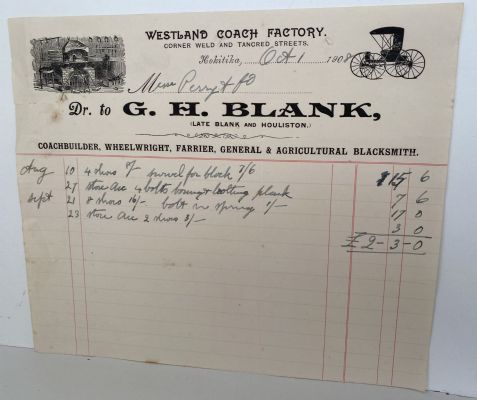 WESTLAND COACH FACTORY.
CORNER WELD AND TANCRED STREETS.
Hokitika, Oct 1 1908
Messrs Perry & Co
Dr. to G. H. BLANK,
(LATE BLANK AND HOULISTON.)
COACHBUILDER, WHEELWRIGHT, FARRIER, GENERAL & AGRICULTURAL BLACKSMITH.
Aug 10 4 shoes 8/- swivel for block 7/6 15 6
27 store acc 4 bolts boring & bolting plank 7 6
Sept 21 8 shoes 16/- bolt in spring 1/- 17 0
23 store acc 2 shoes 3/- 3 0
£ 2 - 3 - 0